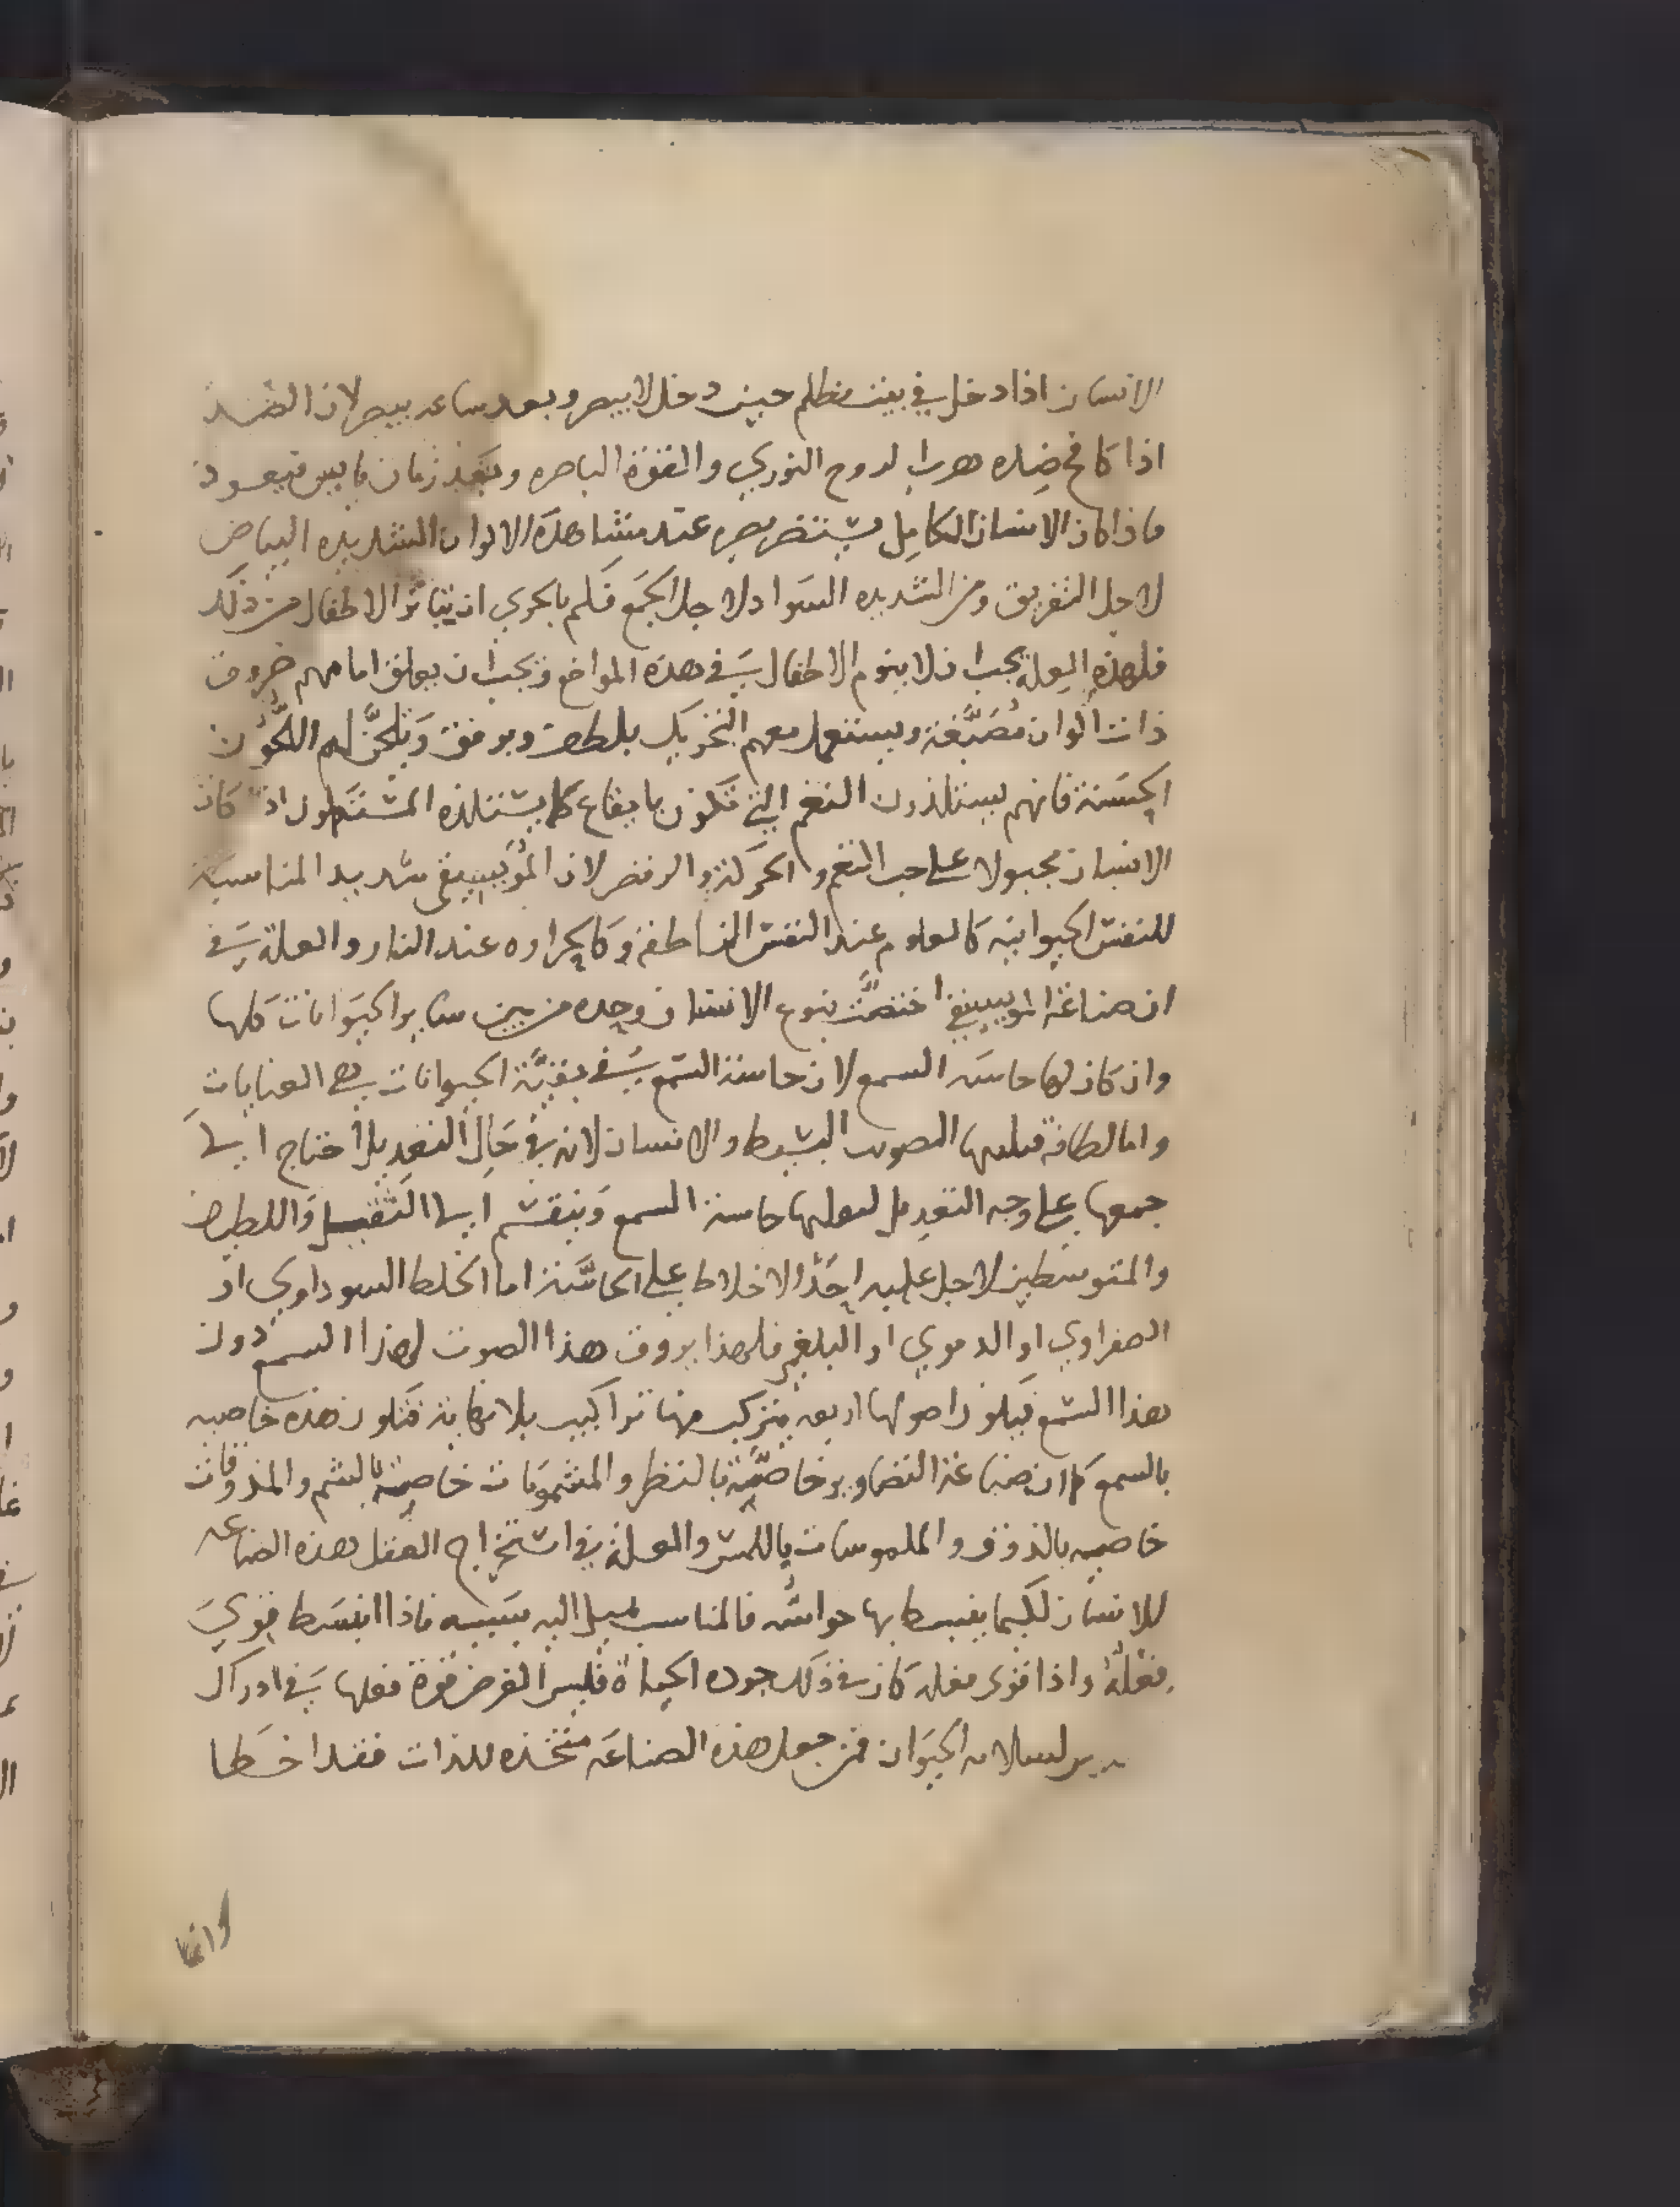 الانسان اذا دخل في بيت مظلم حين دخل لا يبصر وبعد ساعه يبصر لان الضد
اذا كافح ضده هرب الروح النوري والقوة الباصره وبعد زمان ما يس فيعود
فاذا كان الانسان الكامل يستضر بصره عند مشاهدة الالوان الشديده البياض
لاجل التفريق ومن الشديده السواد لاجل الجمع فكم بالحري ان يتاثر الاطفال من ذلك
فلهذه العلة يجب ان لا ينوم الاطفال في هذه المواضع ويجب ان يعلق امامهم خروق
ذات الوان مُصَبَّغة ويستعمل معهم التحريك بلطف وبرفق ويلحَّن لهم اللحُون
الحسَنة فانهم يستلذون النغم التي تكون بايقاع كما يستلذه المستكملون اذ كان
الانسان مجبولا على حب النغم والحركة والرقص لان الموسيقى شديد المناسبة
للنفس الحيوانيه كالعلوم عند النفس الناطقه وكالحراره عند النار والعلة في
ان صناعة الموسيقا اختصَّت بنوع الانسان وحده من بين ساير الحيَوانات كلها
وان كان لها حاسَه السمع لان حاسة السَمع في بقيَّة الحيوانات هي العنايات
واما لطافة قبلها الصوت البسيط والانسان لانه في حَال التعديل احتاج الى
جمعها على وجه التعديل لقبلها حاسة السمع وينقسم الى الثقيل واللطيف
والمتوسطين لاجل غلبه احَد الاخلاط على الحاسَّة اما الخلط السوداوي او
الصفراوي او الدموي او البلغمي فلهذا يروق هذا الصوت لهذا السمع دون
هذا السَمع فيكون اصولها اربعه يتركب منها تراكيب بلا نهاية فتكون هذه خاصيه
بالسمع كما ان صناعة التصاوير خاصيَّة بالنظر والمشمومَات خاصية بالشم والمذوقات
خاصيه بالذوق والملموسات باللمس والعلة في استخراج العقل هذه الصناعه
للانسان لكيما يغبسط بها حواسُّه فالمناسب يميل اليه بسَببه فاذا انبسَط قوي
فعلهُ واذا قوى فعله كان في ذلك جوده الحياة فليس الغرض قوة فعلها في ادراك
لسلامه الحيَوان فمن جعل هذه الصناعَه متخذه للذات فقد اخطا
وانما